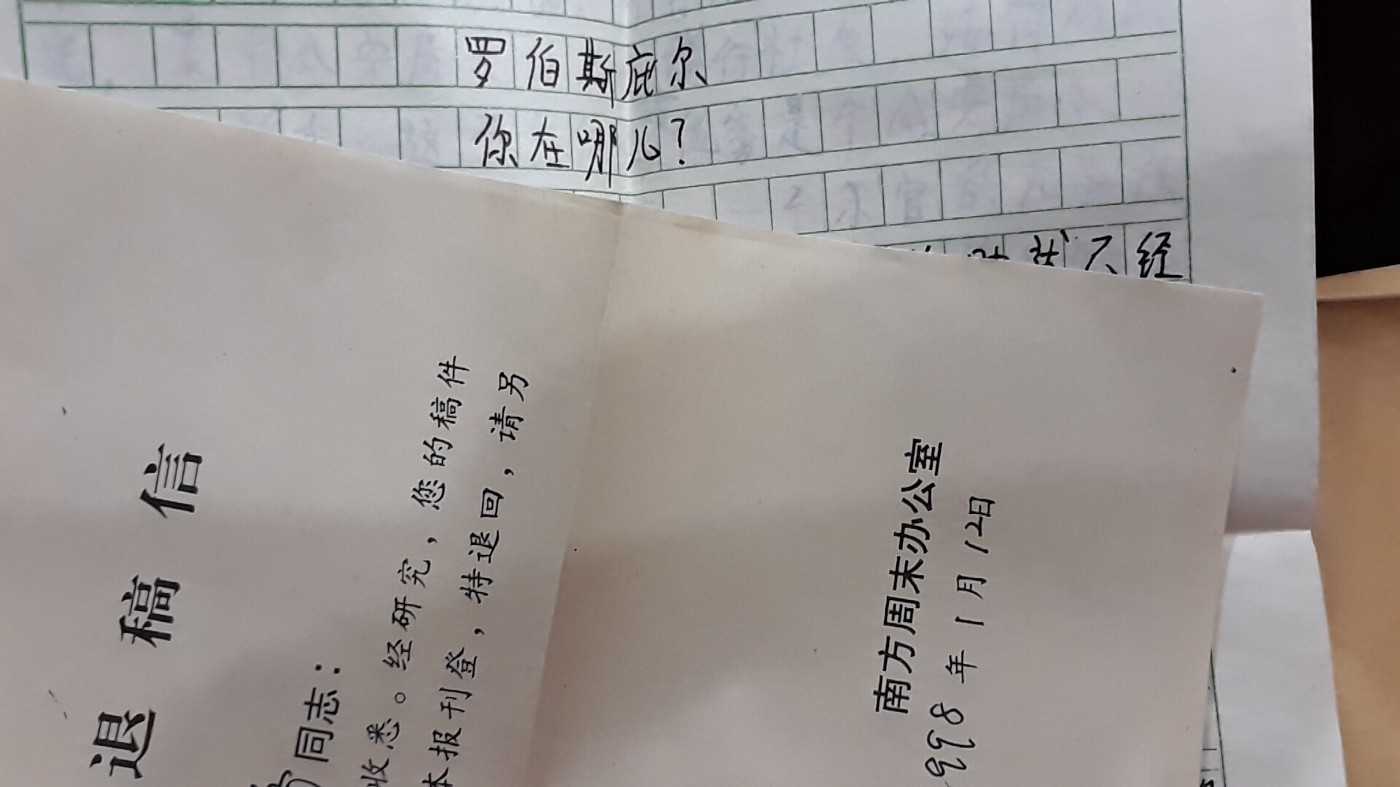 罗伯斯庇尔
你在哪儿？
不经
退稿信
同志：
收悉。经研究，您的稿件
本报刊登，特退回，请另
南方周末办公室
998年1月12日